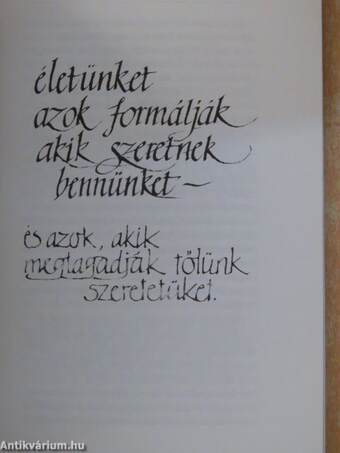 életünket
azok formálják
akik szeretnek
bennünket ~
és azok, akik
megtagadják tőlünk
szeretetüket.
Antikvárium.hu